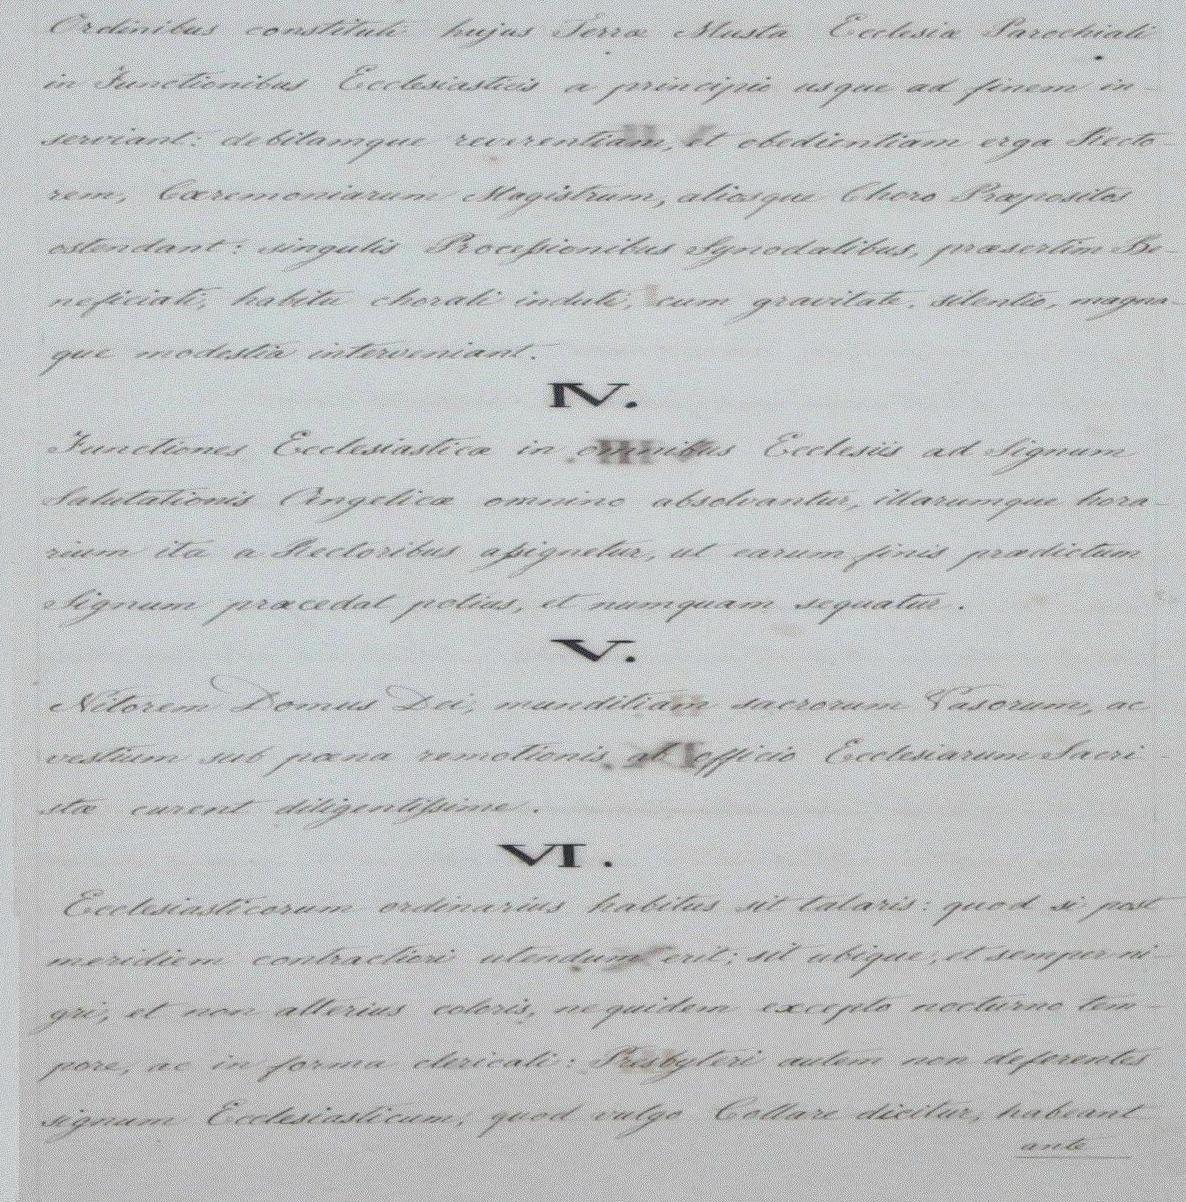 Ordinibus constituti hujus Terræ Musta Ecclesiæ Parochiali
in Functionibus Ecclesiasticis a principio usque ad finem in-
serviant: debitamque reverentiam, et obedientiam erga Recto-
rem, Cæremoniarum Magistrum, aliosque Choro Præpositos
ostendant: singulis Proceſsionibus Synodalibus, præsertim Be-
neficiati, habitu chorali induti, cum gravitate, silentio, magna-
que modestia interveniant.
IV.
Functiones Ecclesiasticæ in omnibus Ecclesiis ad Signum
Salutationis Angelicæ omnino absolvantur, illarumque hora-
rium ita a Rectoribus aſsignetur, ut earum finis prædictum
Signum præcedat potius, et numquam sequatur.
V.
Nitorem Domus Dei, munditiam sacrorum Vasorum, ac
vestium sub pœna remotionis ab officio Ecclesiarum Sacri-
stæ curent diligentiſsime.
VI.
Ecclesiasticorum ordinarius habitus sit talaris: quod si post
meridiem contractiori utendum erit; sit ubique, et semper ni-
gri, et non alterius coloris, ne quidem excepto nocturno tem-
pore, ac in forma clericali: Presbyteri autem non deferentes
signum Ecclesiasticum, quod vulgo Collare dicitur, habeant
ante